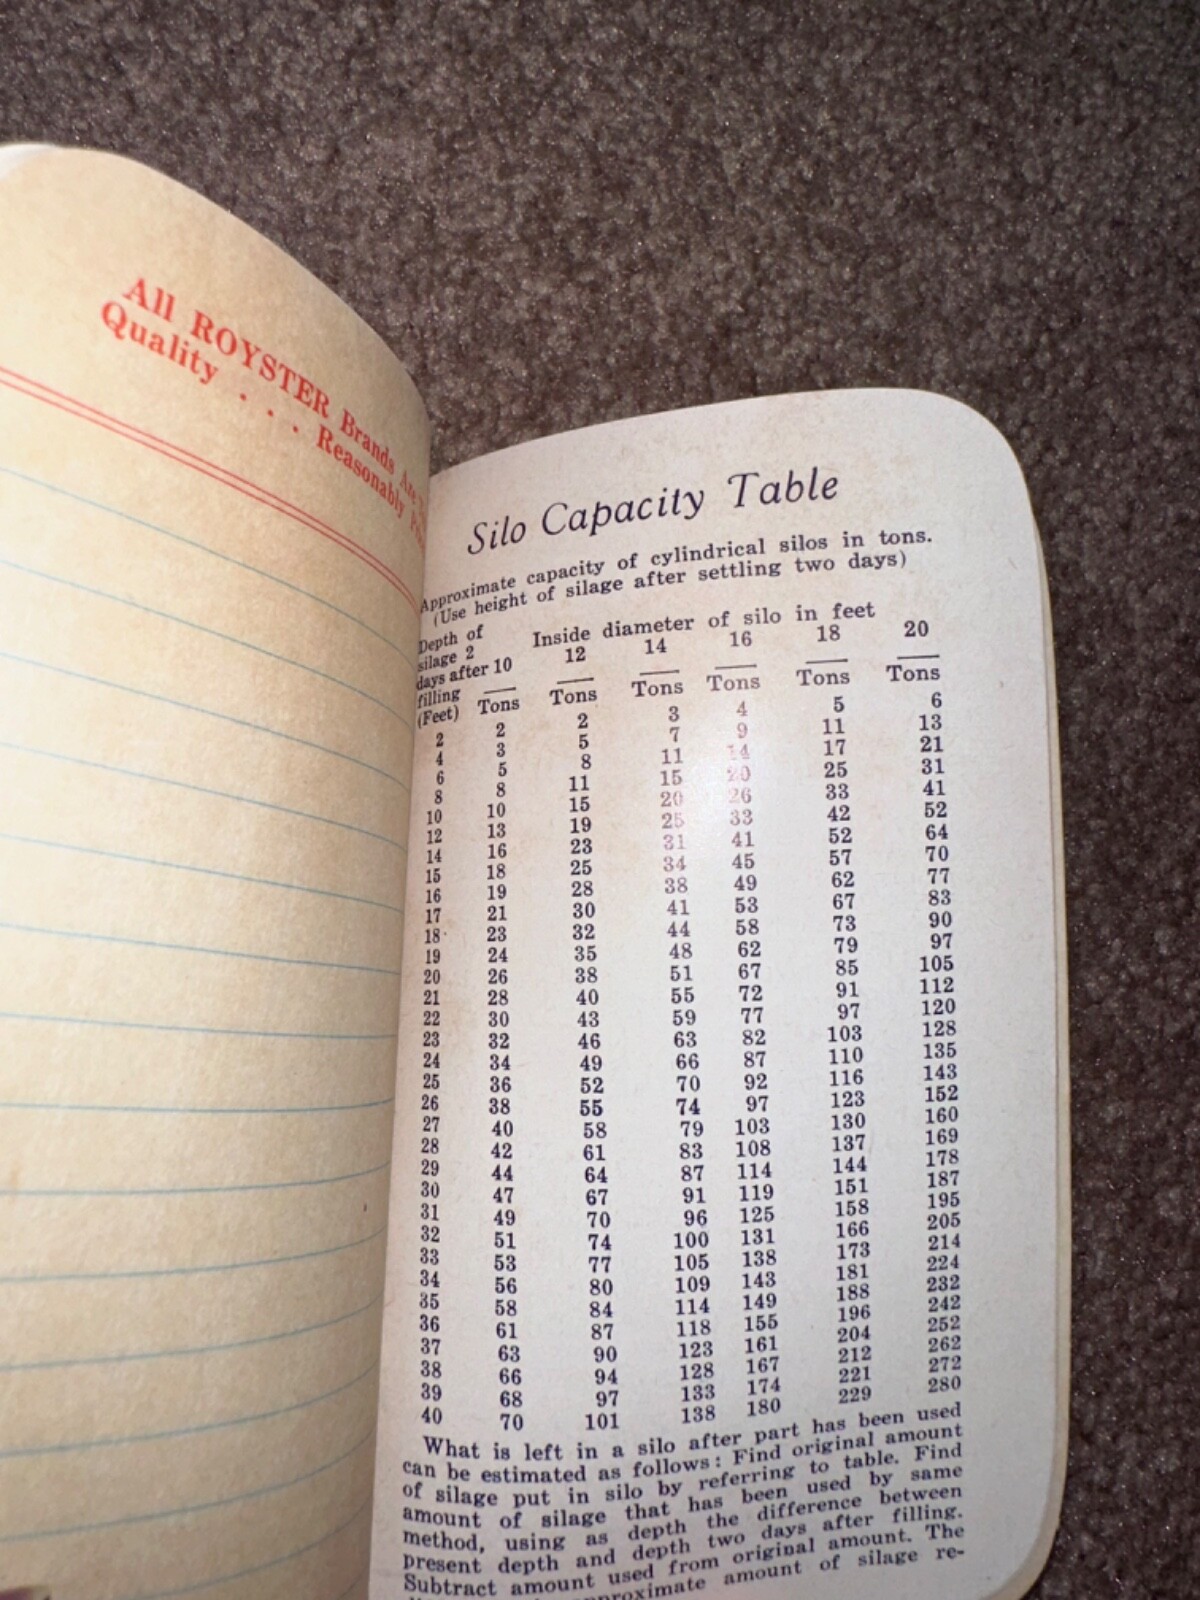 All ROYSTER Brands Are
Quality . . . Reasonably
Silo Capacity Table
Approximate capacity of cylindrical silos in tons.
(Use height of silage after settling two days)
Depth of Inside diameter of silo in feet
silage 2
days after 10 12 14 16 18 20
filling
(Feet) Tons Tons Tons Tons Tons Tons
2 2 2 3 4 5 6
4 3 5 7 9 11 13
6 5 8 11 14 17 21
8 8 11 15 20 25 31
10 10 15 20 26 33 41
12 13 19 25 33 42 52
14 16 23 31 41 52 64
15 18 25 34 45 57 70
16 19 28 38 49 62 77
17 21 30 41 53 67 83
18 23 32 44 58 73 90
19 24 35 48 62 79 97
20 26 38 51 67 85 105
21 28 40 55 72 91 112
22 30 43 59 77 97 120
23 32 46 63 82 103 128
24 34 49 66 87 110 135
25 36 52 70 92 116 143
26 38 55 74 97 123 152
27 40 58 79 103 130 160
28 42 61 83 108 137 169
29 44 64 87 114 144 178
30 47 67 91 119 151 187
31 49 70 96 125 158 195
32 51 74 100 131 166 205
33 53 77 105 138 173 214
34 56 80 109 143 181 224
35 58 84 114 149 188 232
36 61 87 118 155 196 242
37 63 90 123 161 204 252
38 66 94 128 167 212 262
39 68 97 133 174 221 272
40 70 101 138 180 229 280
What is left in a silo after part has been used
can be estimated as follows: Find original amount
of silage put in silo by referring to table. Find
amount of silage that has been used by same
method, using as depth the difference between
present depth and depth two days after filling.
Subtract amount used from original amount. The
approximate amount of silage re-